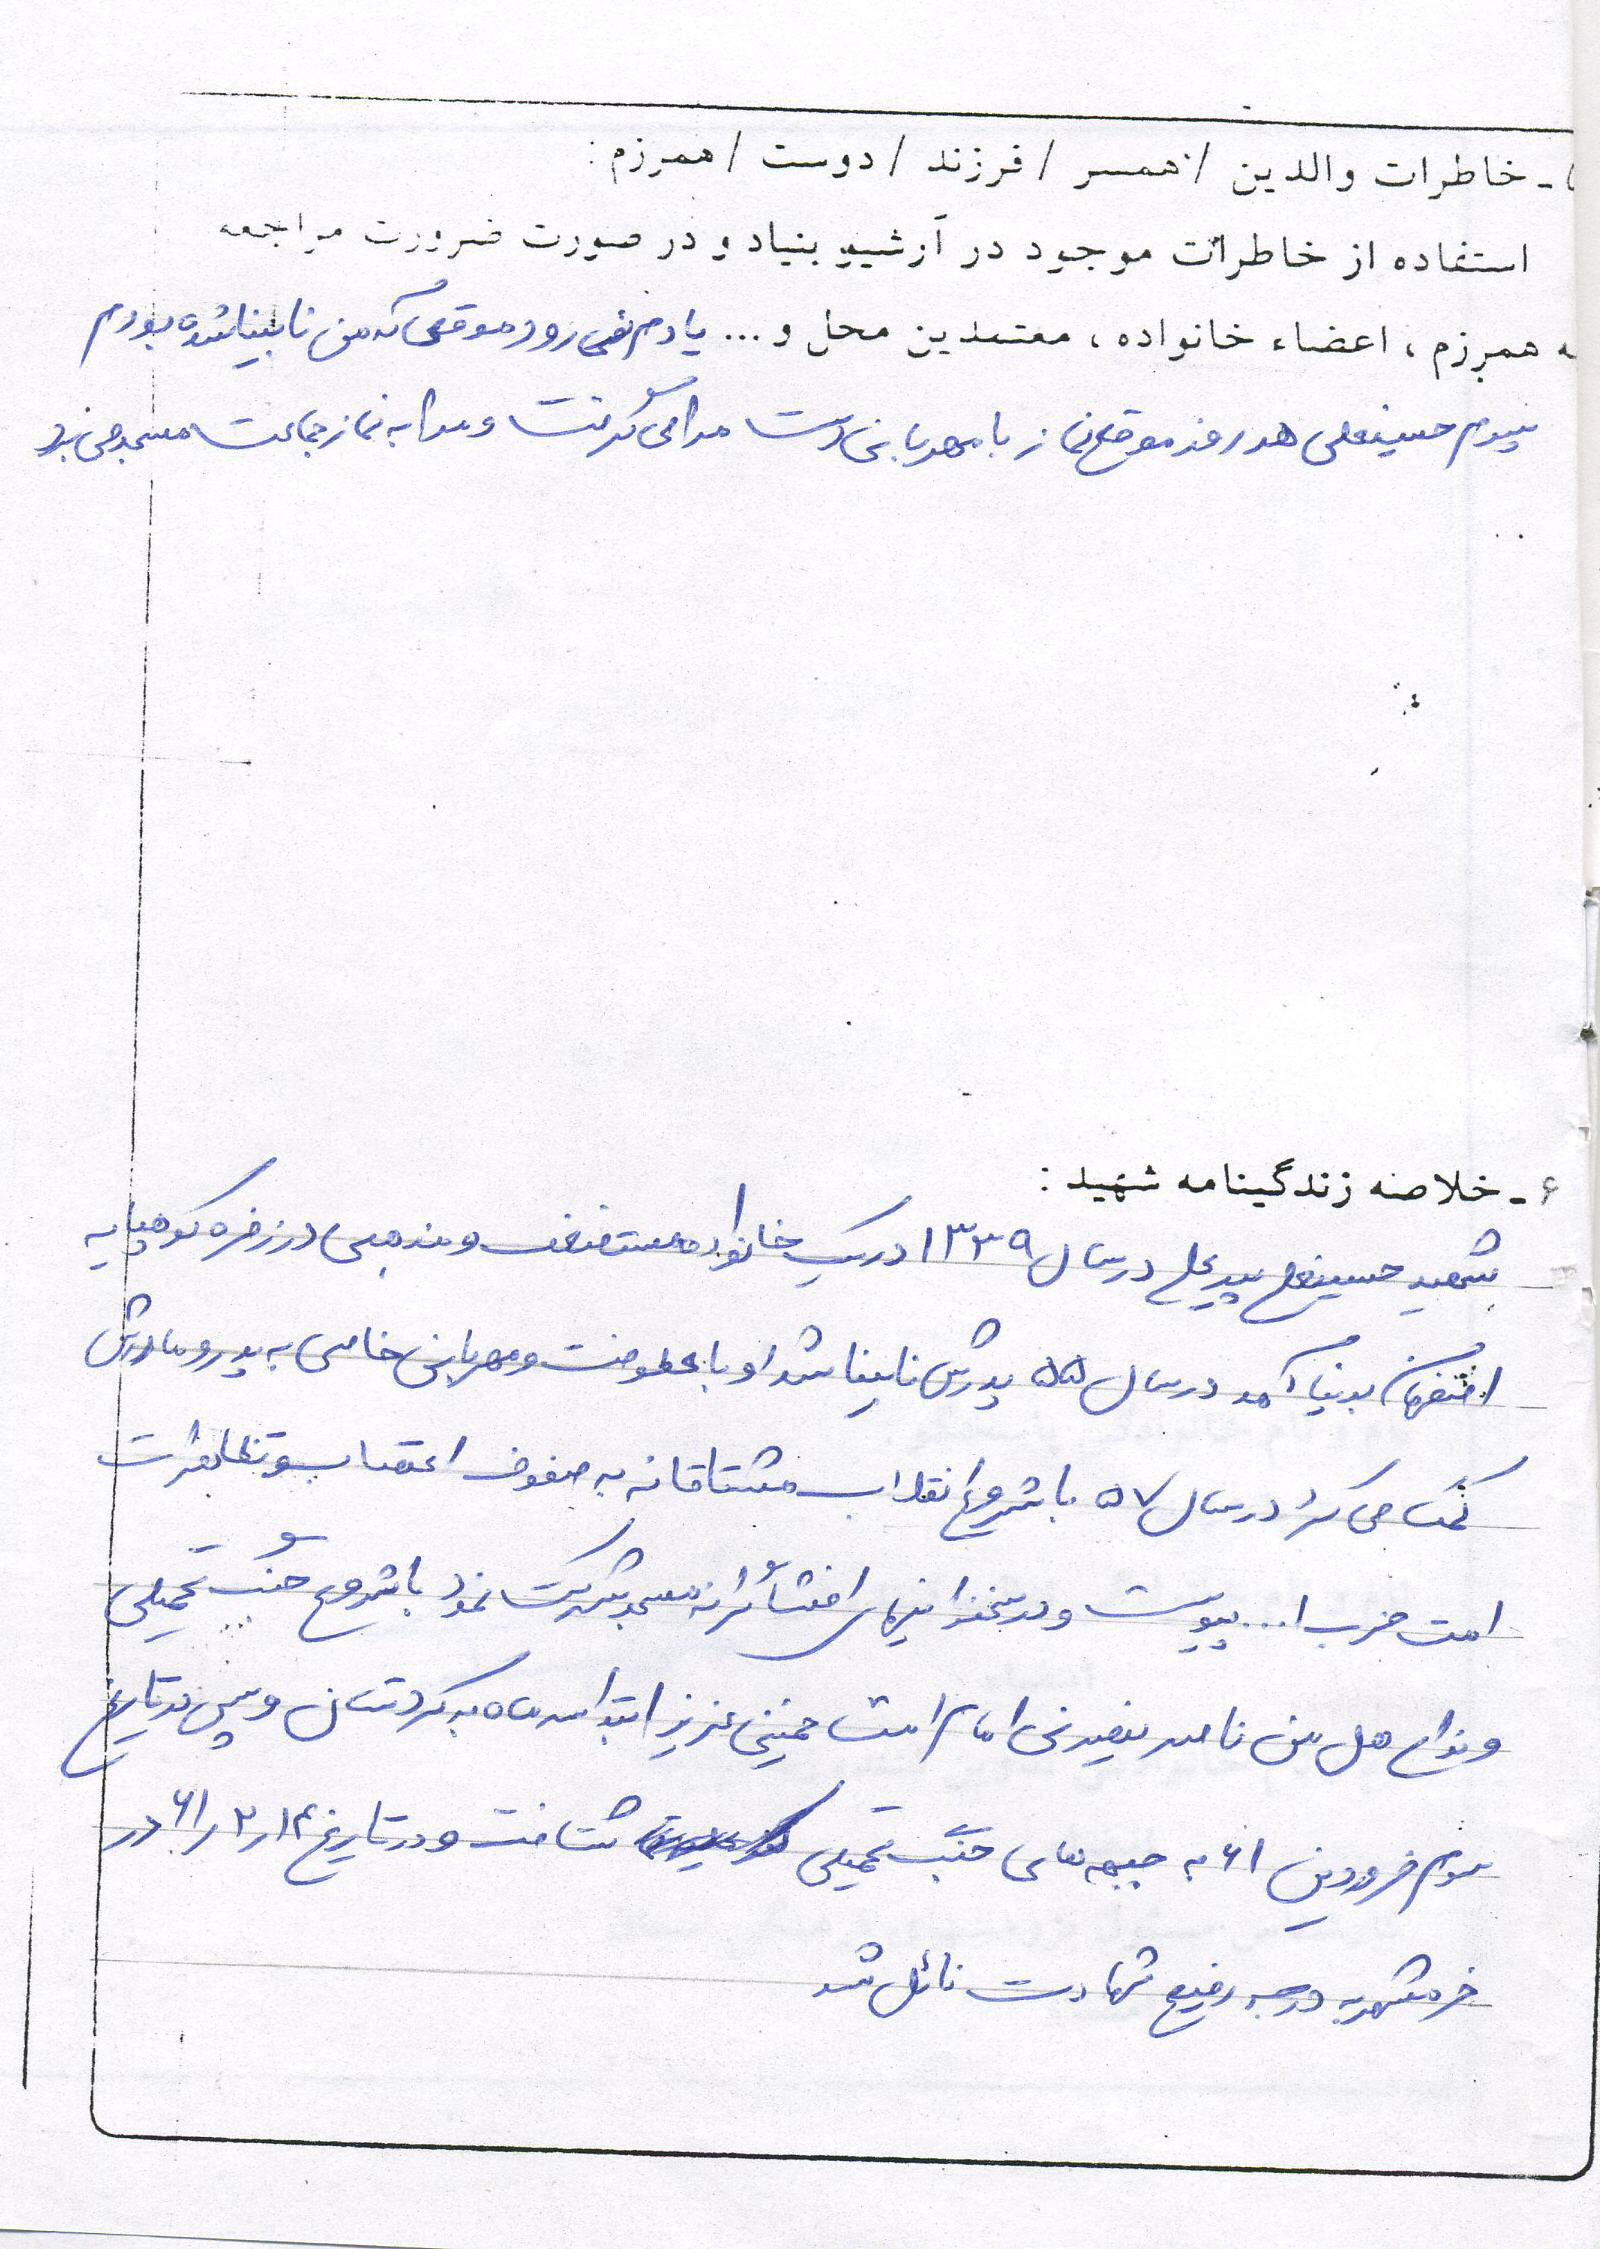 - خاطرات والدین / همسر / فرزند / دوست / همرزم :
استفاده از خاطرات موجود در آرشیو بنیاد و در صورت ضرورت مراجعه
به همرزم ، اعضاء خانواده ، معتمدین محل و ... یادم نمی رود موقعی که من نابینا شده بودم
پسرم حسینعلی هر روز موقع نماز با مهربانی دست مرا می گرفت و مرا به نماز جماعت مسجد می برد
۶ - خلاصه زندگینامه شهید :
شهید حسینعلی پیرعلی در سال ۱۳۳۹ در یک خانواده مستضعف و مذهبی در زفره کوهپایه
اصفهان بدنیا آمد در سال ۵۵ پدرش نابینا شد او با عطوفت و مهربانی خاصی به پدر و مادرش
کمک می کرد در سال ۵۷ با شروع انقلاب مشتاقانه به صفوف اعتصاب و تظاهرات
امت حزب ا... پیوست و در سخنرانیهای افشاگرانه مسجد شرکت نمود با شروع جنگ تحمیلی
و ندای هل من ناصر ینصرنی امام امت خمینی عزیز ابتدا سه ماه به کردستان و سپس در تاریخ
سوم فروردین ۶۱ به جبهه های جنگ تحمیلی شتافت و در تاریخ ۶۱/۲/۱۴ در
خرمشهر به درجه رفیع شهادت نائل شد